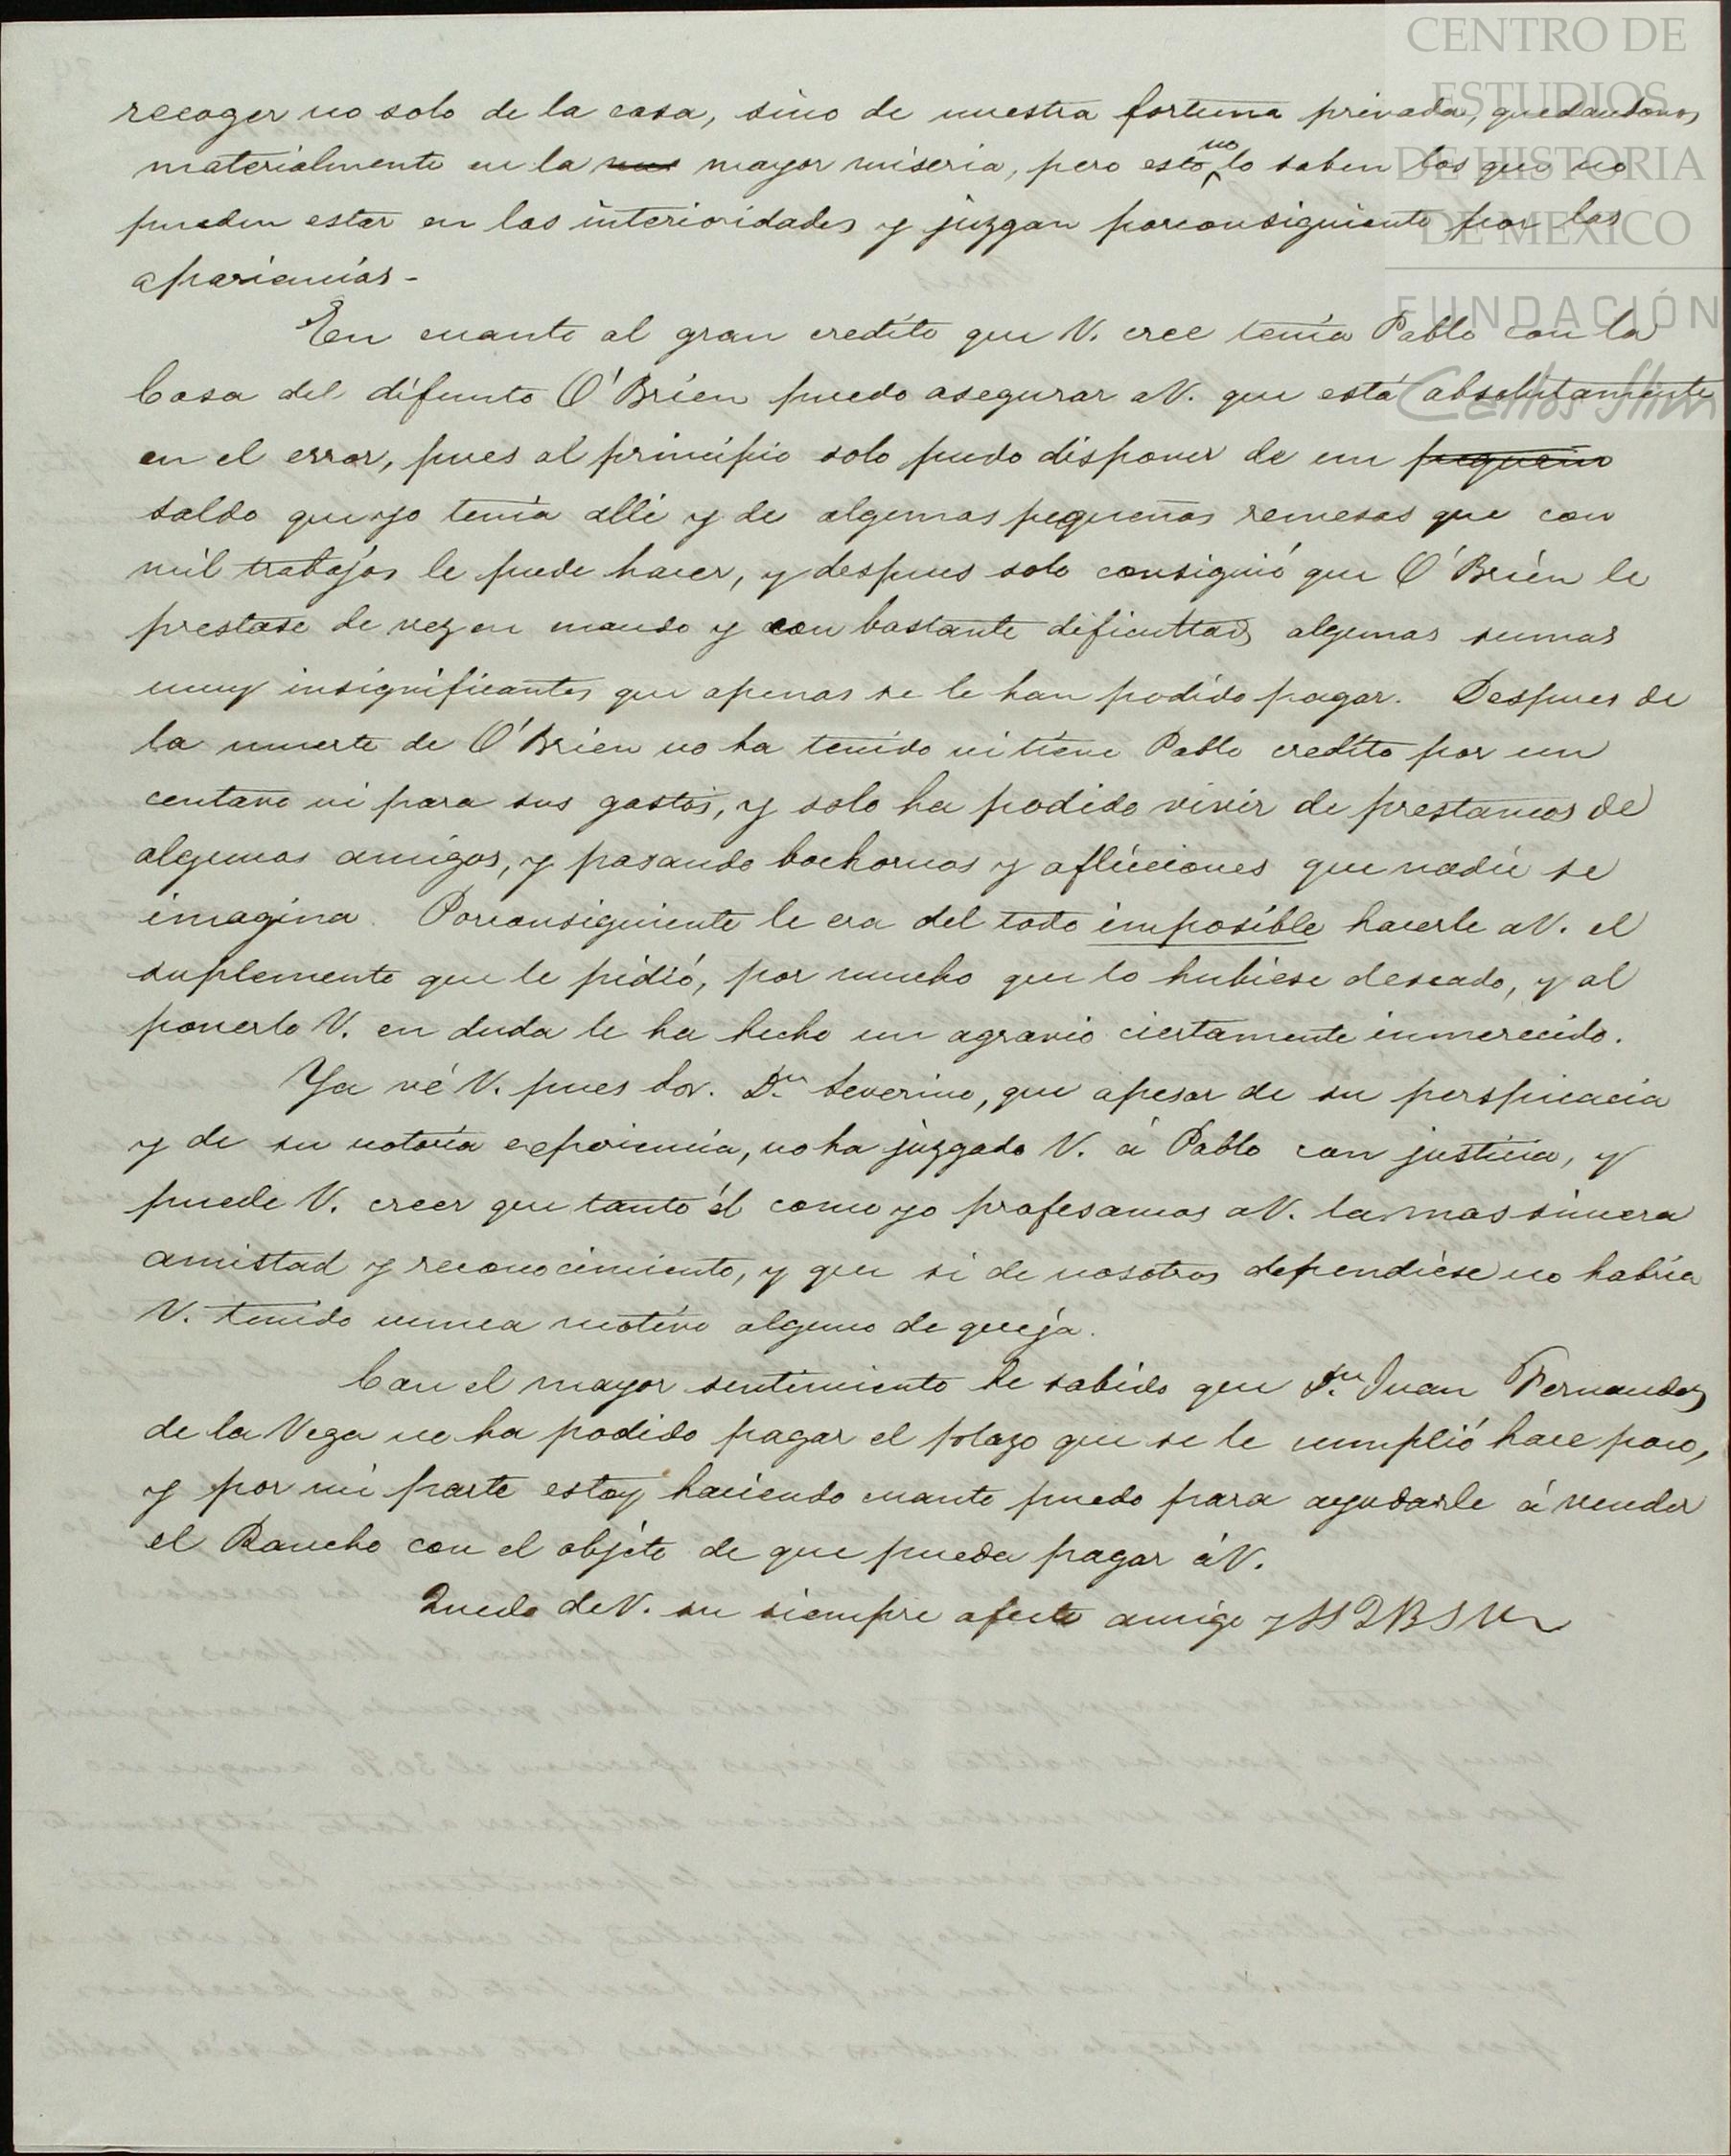 CENTRO DE
ESTUDIOS
DE HISTORIA
DE MÉXICO
FUNDACIÓN
Carlos Slim
recoger no solo de la casa, sino de nuestra fortuna privada, quedandonos
materialmente en la mayor miseria, pero esto no lo saben los que no
pueden estar en las interioridades y juzgan porconsiguiente por las
apariencias-
En cuanto al gran credito que V. cree tenía Pablo con la
Casa del difunto O'Brien puedo asegurar a V. que está absolutamente
en el error, pues al principio solo pudo disponer de un pequeño
saldo que yo tenía allí y de algunas pequeñas remesas que con
mil trabajos le pude hacer, y despues solo consiguió que O'Brien le
prestase de vez en cuando y con bastante dificultad, algunas sumas
muy insignificantes que apenas se le han podido pagar. Despues de
la muerte de O'Brien no ha tenido ni tiene Pablo credito por un
centavo ni para sus gastos, y solo ha podido vivir de prestamos de
algunos amigos, y pasando bochornos y aflicciones que nadie se
imagina. Porconsiguiente le era del todo imposible hacerle a V. el
suplemento que le pidió, por mucho que lo hubiese deseado, y al
ponerlo V. en duda le ha hecho un agravio ciertamente inmerecido.
Ya vé V. pues Sor. Dn. Severino, que apesar de su perspicacia
y de su notoria experiencia, no ha juzgado V. á Pablo con justicia, y
puede V. creer que tanto él como yo profesamos a V. la mas sincera
amistad y reconocimiento, y que si de nosotros dependiese no habria
V. tenido nunca motivo alguno de queja.
Con el mayor sentimiento he sabido que Dn. Juan Fernandez
de la Vega no ha podido pagar el plazo que se le cumplió hace poco,
y por mi parte estoy haciendo cuanto puedo para ayudarle á vender
el Rancho con el objeto de que pueda pagar á V.
Quedo de V. su siempre afecto amigo y SS Q B S M